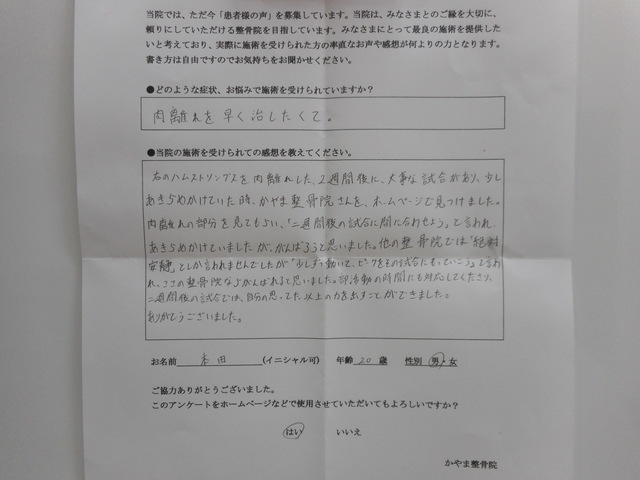 当院では、ただ今「患者様の声」を募集しています。当院は、みなさまとのご縁を大切に、
頼りにしていただける整骨院を目指しています。みなさまにとって最良の施術を提供した
いと考えており、実際に施術を受けられた方の率直なお声や感想が何よりの力となります。
書き方は自由ですのでお気持ちをお聞かせください。
●どのような症状、お悩みで施術を受けられていますか？
肉離れを早く治したくて。
●当院の施術を受けられての感想を教えてください。
右のハムストリングスを肉離れした、2週間後に、大事な試合があり、少し
あきらめかけていた時、かやま整骨院さんを、ホームページで見つけました。
肉離れの部分を見てもらい、「二週間後の試合に間に合わせよう」と言われ、
あきらめかけていましたが、がんばろうと思いました。他の整骨院では「絶対
安静」としか言われませんでしたが「少しずつ動いて、ピークをその試合にもっていこう」と言わ
れ、ここの整骨院ならがんばれると思いました。部活動の時間にも対応してくださり、
二週間後の試合では、自分の思ってた以上の力を出すことができました。
ありがとうございました。
お名前 本田 (イニシャル可) 年齢 20 歳 性別 男・女
ご協力ありがとうございました。
このアンケートをホームページなどで使用させていただいてもよろしいですか？
はい いいえ
かやま整骨院